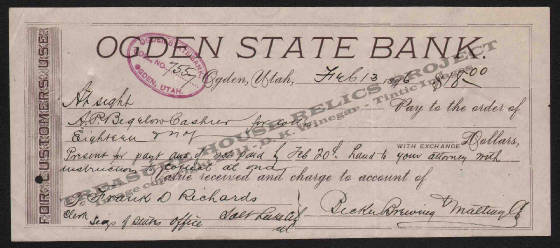 OGDEN STATE BANK.
FOR CUSTOMERS USE
OGDEN, UTAH.
No. 755
Ogden, Utah, Feb 13 $18.00
At sight Pay to the order of
A. P. Bigelow Cashier
Eighteen & no/ Dollars,
WITH EXCHANGE
Present for paymt and if not paid by Feb 20th hand to your attorney with
instruction to collect at once
value received and charge to account of
Frank D Richards
Clerk Salt Lake
Office
Becker Brewing & Malting Co
TREASURE HOUSE RELICS PROJECT
Image D. K. Winegar - Tintic